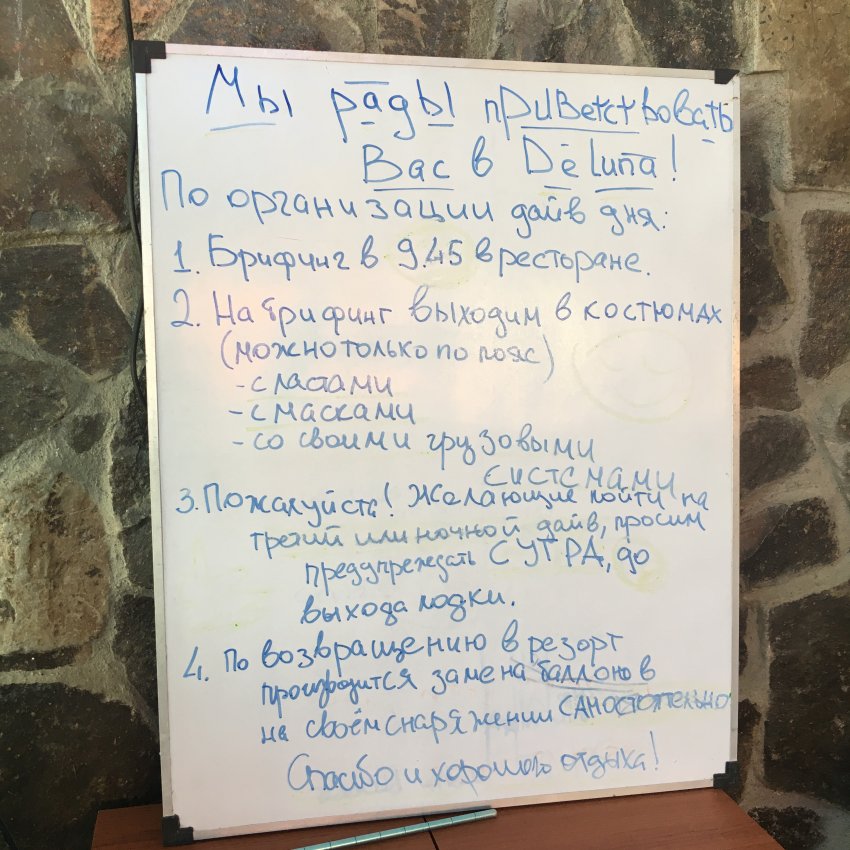 Мы рады приветствовать
Вас в De luna!
По организации дайв дня:
1. Брифинг в 9.45 в ресторане.
2. На брифинг выходим в костюмах
(можно только по пояс)
- с ластами
- с масками
- со своими грузовыми
системами
3. Пожалуйста! Желающие пойти на
третий или ночной дайв, просим
предупреждать С УТРА, до
выхода лодки.
4. По возвращению в резорт
производится замена баллонов
на своём снаряжении САМОСТОЯТЕЛЬНО
Спасибо и хорошого отдыха!